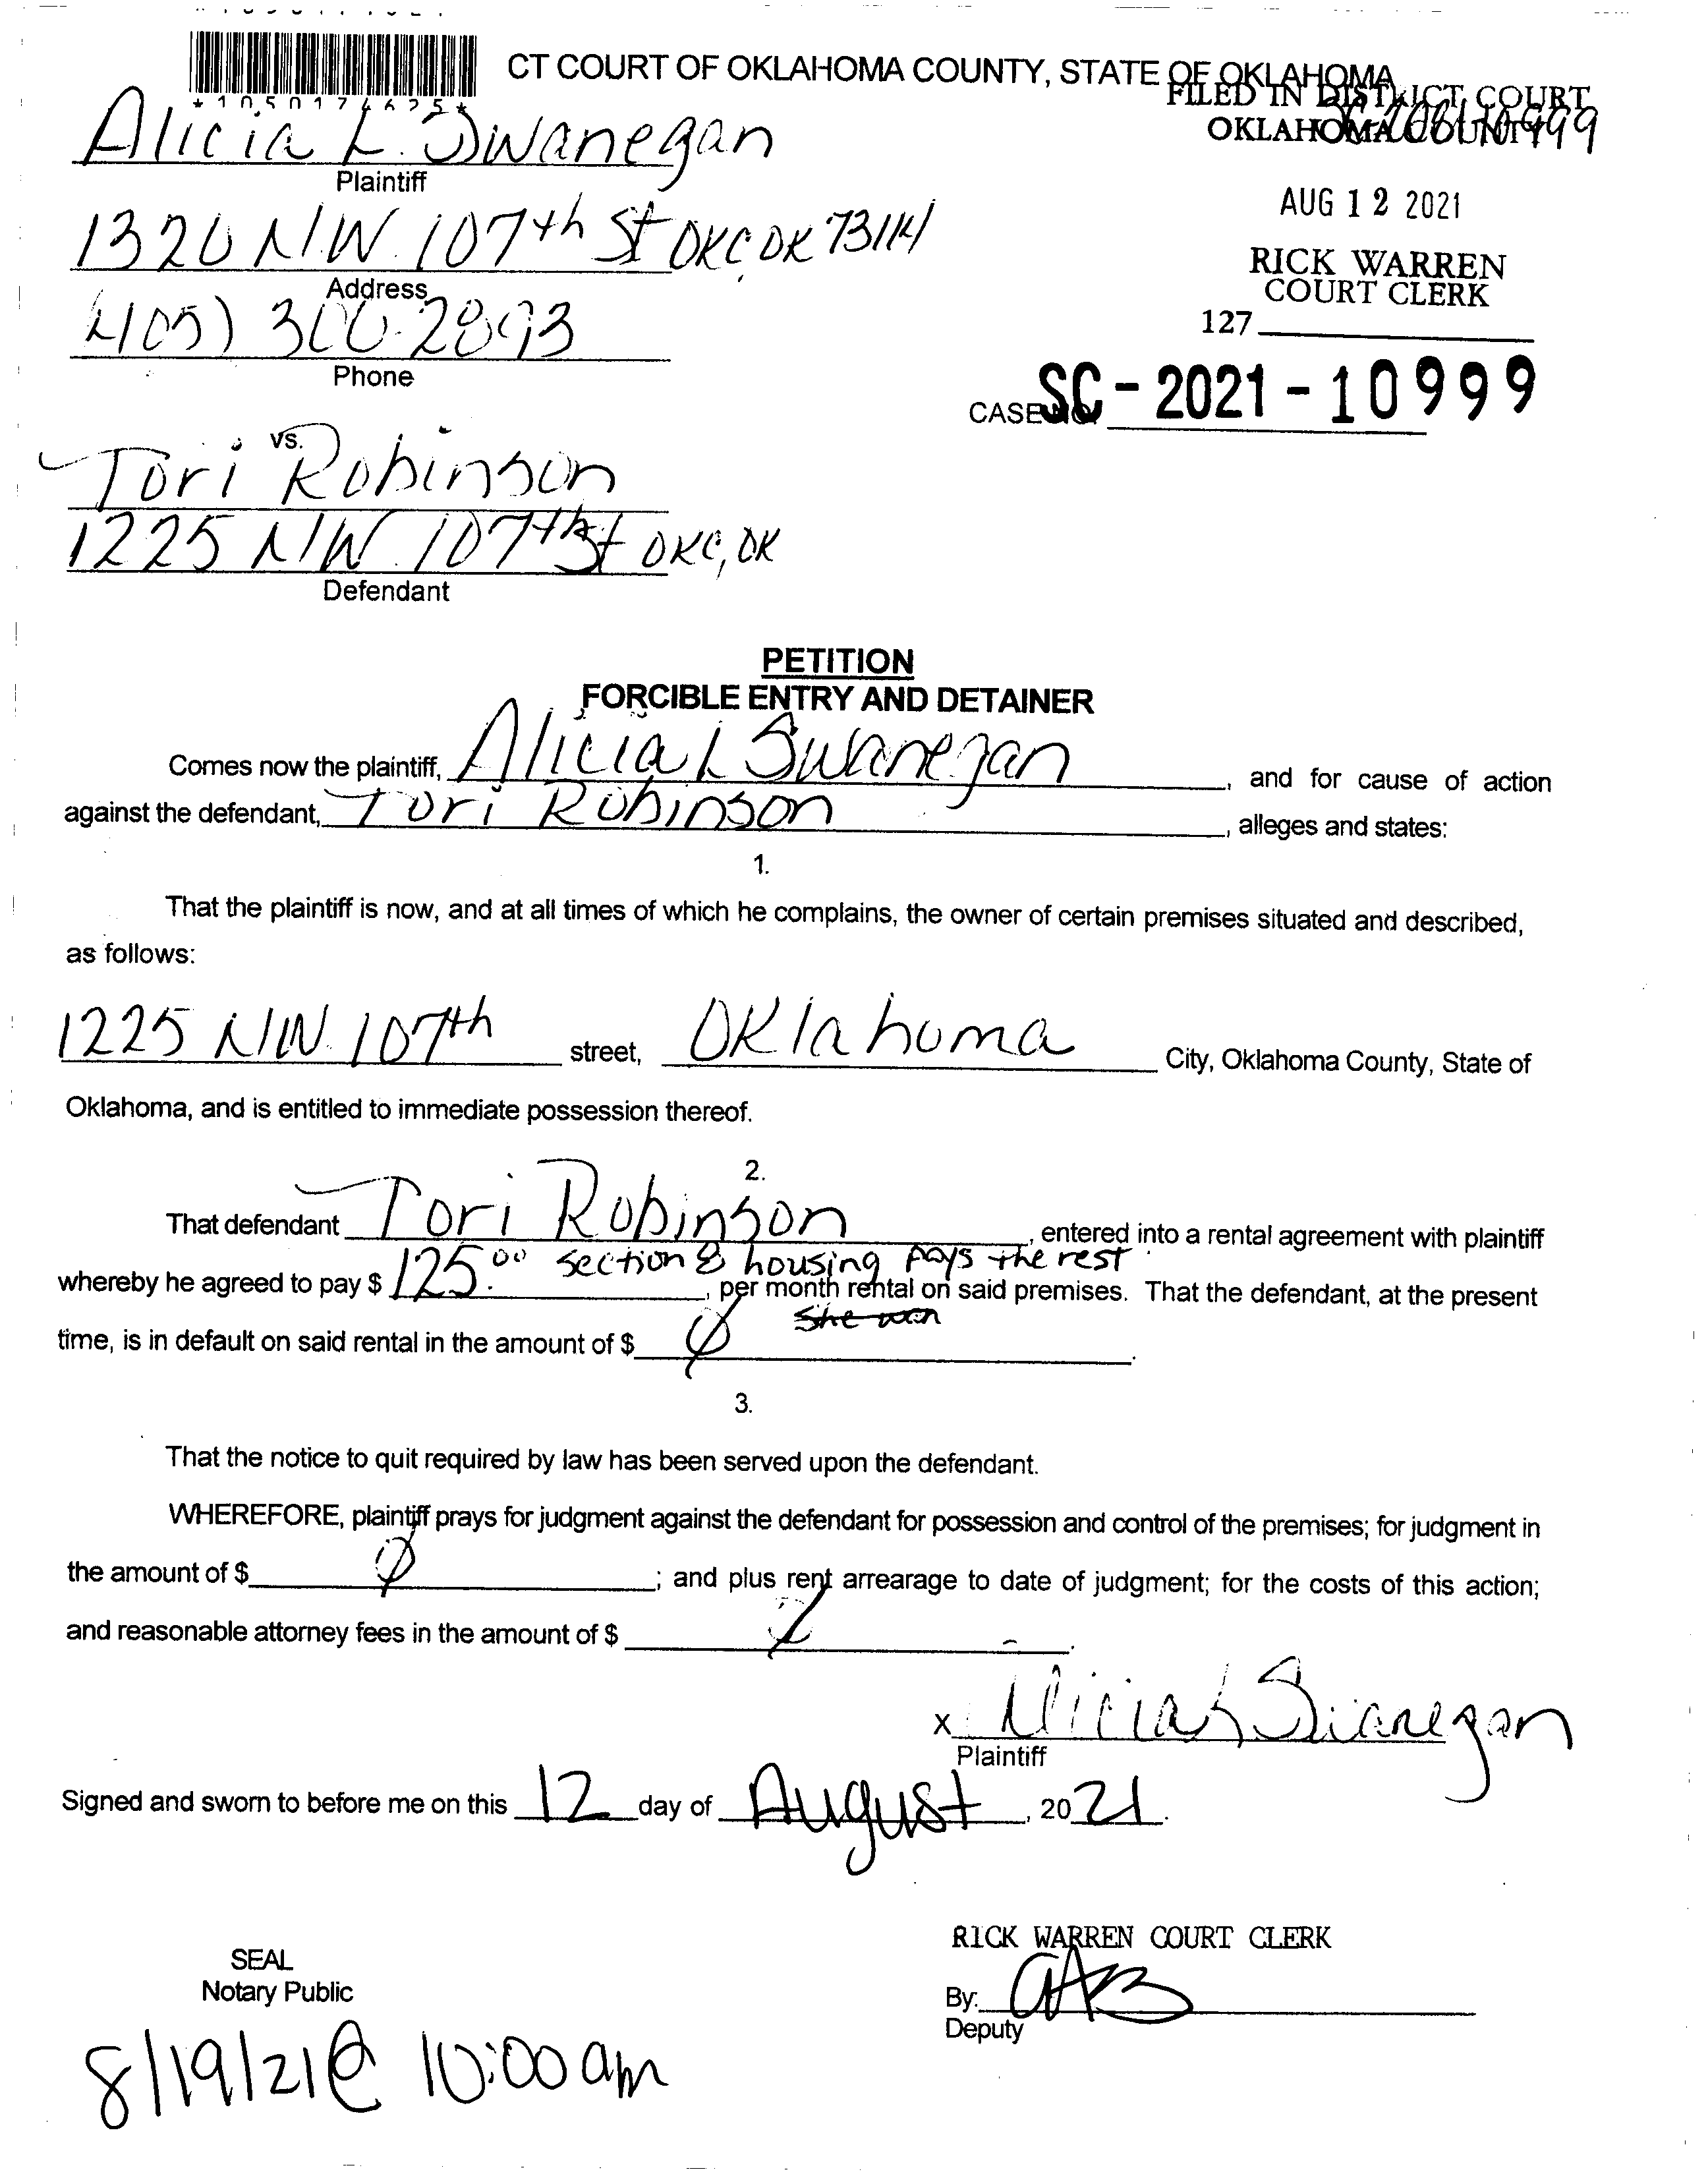 *1050174625*
CT COURT OF OKLAHOMA COUNTY, STATE OF OKLAHOMA
FILED IN DISTRICT COURT
OKLAHOMA COUNTY
Alicia L. Swanegan
Plaintiff
AUG 12 2021
1320 N.W. 107th St OKC OK 73114
RICK WARREN
COURT CLERK
Address
127
(405) 300-2893
Phone
CASE NO. SC-2021-10999
vs.
Tori Robinson
1225 N.W. 107th St OKC, OK
Defendant
PETITION
FORCIBLE ENTRY AND DETAINER
Comes now the plaintiff, Alicia L Swanegan, and for cause of action
against the defendant, Tori Robinson, alleges and states:
1.
That the plaintiff is now, and at all times of which he complains, the owner of certain premises situated and described,
as follows:
1225 N.W. 107th street, Oklahoma City, Oklahoma County, State of
Oklahoma, and is entitled to immediate possession thereof.
2.
That defendant Tori Robinson, entered into a rental agreement with plaintiff
section 8 housing pays the rest
whereby he agreed to pay $ 125.00, per month rental on said premises. That the defendant, at the present
time, is in default on said rental in the amount of $ Ø.
3.
That the notice to quit required by law has been served upon the defendant.
WHEREFORE, plaintiff prays for judgment against the defendant for possession and control of the premises; for judgment in
the amount of $ Ø; and plus rent arrearage to date of judgment; for the costs of this action;
and reasonable attorney fees in the amount of $.
x Alicia L Swanegan
Plaintiff
Signed and sworn to before me on this 12 day of August, 2021.
RICK WARREN COURT CLERK
SEAL
Notary Public
By:
Deputy
8/19/21 @ 10:00am